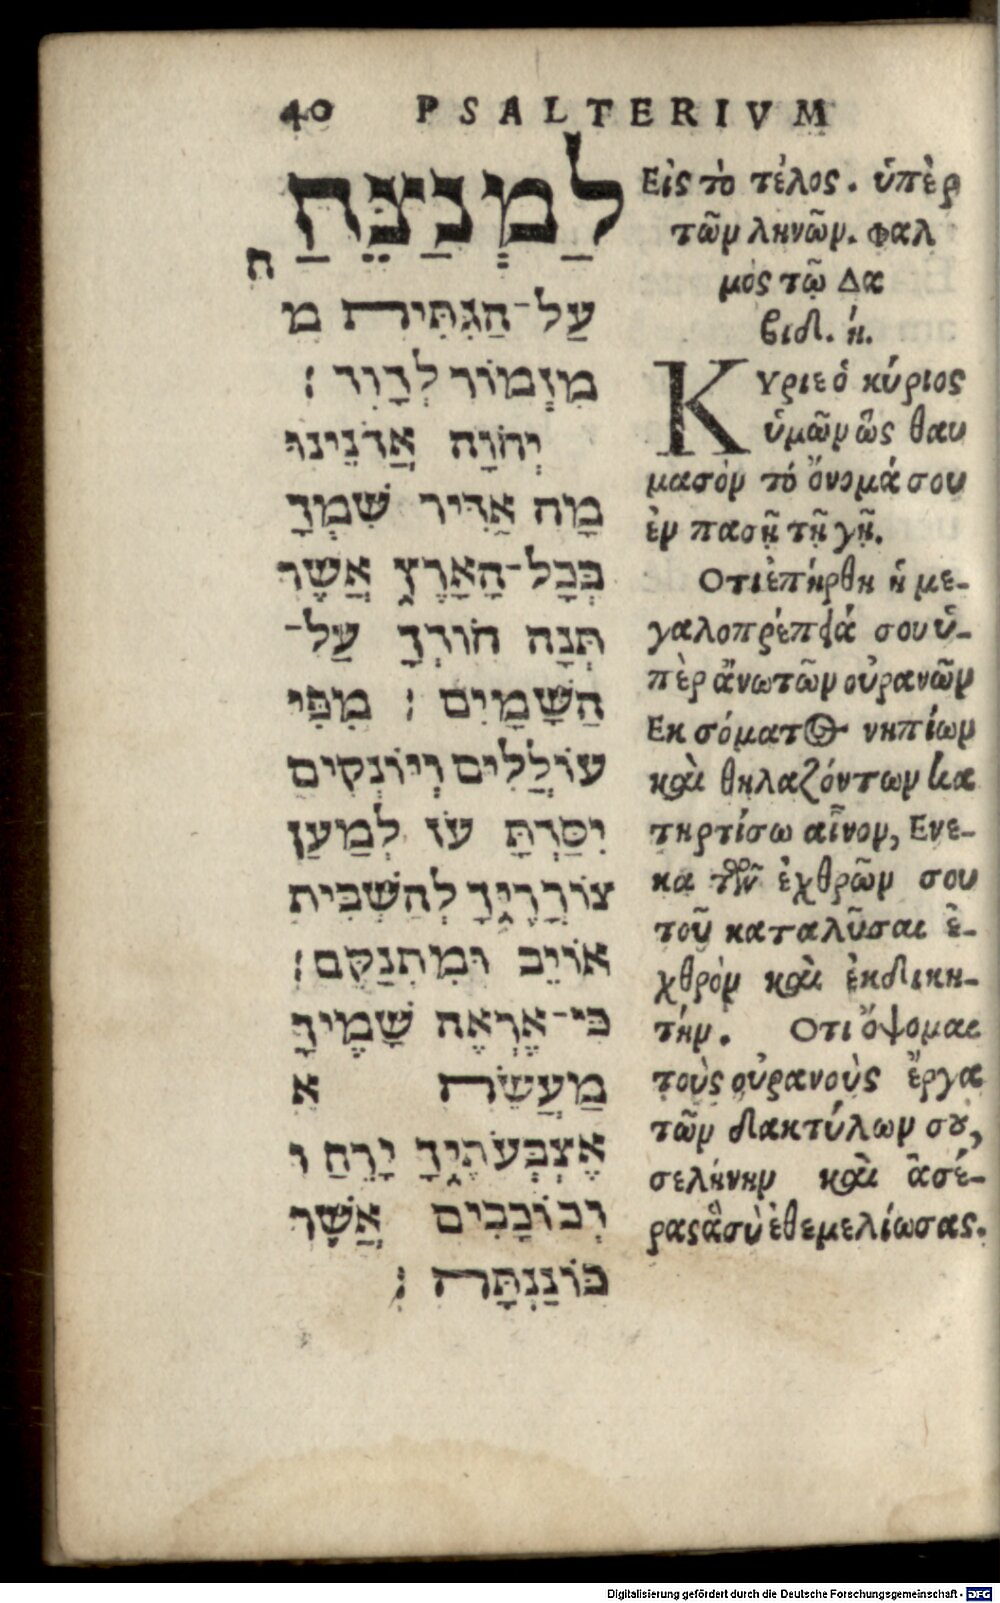 40 PSALTERIVM
לַמְנַצֵּחַ
ח
עַל־הַגִּתִּית מ
מִזְמוֹר לְדָוִד :
יְהֹוָה אֲדֹנֵינוּ
מָה אַדִּיר שִׁמְךָ
בְּכָל־הָאָרֶץ אֲשֶׁר
תְּנָה הוֹדְךָ עַל־
הַשָּׁמָיִם : מִפִּי
עוֹלֲלִים וְיוֹנְקִים
יִסַּדְתָּ עֹז לְמַעַן
צוֹרֲרֶיךָ לְהַשְׁבִּית
אוֹיֵב וּמִתְנַקֵּם :
כִּי־אֶרְאֶה שָׁמֶיךָ
מַעֲשֵׂה א
אֶצְבְּעֹתֶיךָ יָרֵחַ ו
וְכוֹכָבִים אֲשֶׁר
כּוֹנַנְתָּה :
Εἰς τὸ τέλος. ὑπὲρ
τῶν ληνῶν. φαλ
μὸς τῷ Δα
βιδ. ή.
Κυριε ὁ κύριος
ὑμῶν ὣς θαυ
μαστὸν τό ὄνομά σου
ἐν πασῇ τῇ γῇ.
Οτι ἐπήρθη ἡ με-
γαλοπρέπειά σου ὑ-
πὲρ ἄνωτῶν οὐρανῶν
Εκ στόματος νηπίων
καὶ θηλαζόντων κα
τηρτίσω αἶνον, Ενε-
κα τῶν ἐχθρῶν σου
τοῦ καταλῦσαι ἐ-
χθρὸν καὶ ἐκδικη-
τήν. Οτι ὄψομαι
τοὺς οὐρανοὺς ἔργα
τῶν δακτύλων σου,
σελήνην καὶ ἀστέ-
ρας ἃ σὺ ἐθεμελίωσας.
Digitalisierung gefördert durch die Deutsche Forschungsgemeinschaft - DFG